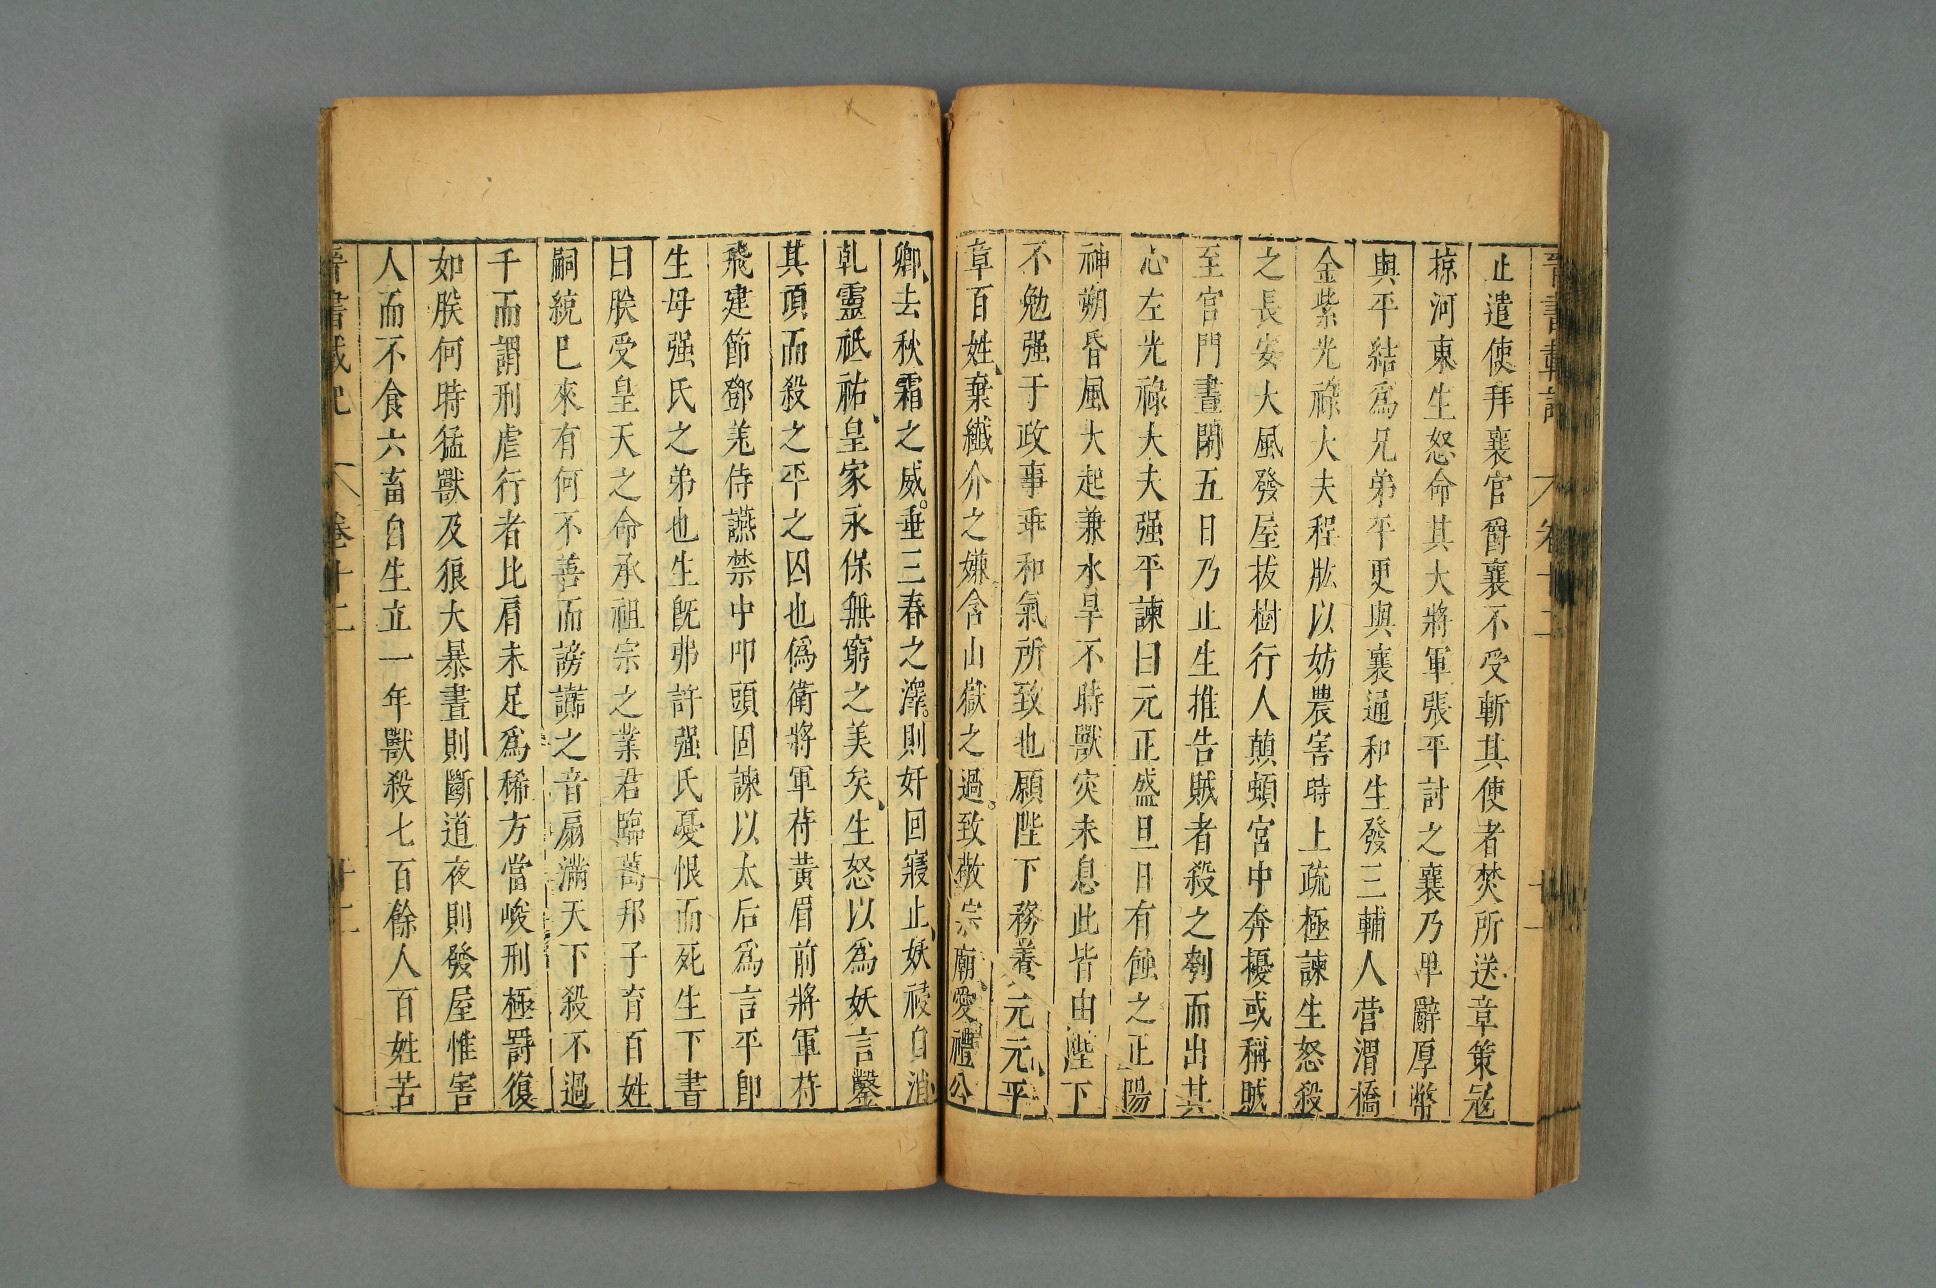 晋書載記 卷十二
止遣使拜襄官爵襄不受斬其使者焚所送章策冦
掠河東生怒命其大將軍張平討之襄乃卑辭厚幣
與平結爲兄弟平更與襄通和生發三輔人營渭橋
金紫光祿大夫程肱以妨農害時上疏極諫生怒殺
之長安大風發屋拔樹行人顛頓宮中奔擾或稱賊
至宮門晝閉五日乃止生推告賊者殺之刳而出其
心左光祿大夫强平諫曰元正盛旦日有蝕之正陽
神朔昏風大起兼水旱不時獸灾未息此皆由陛下
不勉强于政事乖和氣所致也願陛下務養元元平
章百姓棄纖介之嫌含山嶽之過致敬宗廟愛禮公
卿去秋霜之威垂三春之澤則奸回寢止妖祲自消
乹靈祇祐皇家永保無窮之美矣生怒以爲妖言鑿
其頂而殺之平之囚也僞衛將軍苻黃眉前將軍苻
飛建節鄧羌侍讌禁中叩頭固諫以太后爲言平卽
生母强氏之弟也生旣弗許强氏憂恨而死生下書
曰朕受皇天之命承祖宗之業君臨萬邦子育百姓
嗣統已來有何不善而謗讟之音扇滿天下殺不過
千而謂刑虐行者比肩未足爲稀方當峻刑極罸復
如朕何時猛獸及狼大暴晝則斷道夜則發屋惟害
人而不食六畜自生立一年獸殺七百餘人百姓苦
晋書載記 卷十二 十二